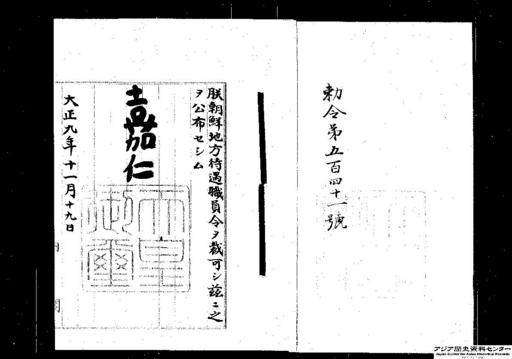 勅令第五百四十一號
朕朝鮮地方待遇職員令ヲ裁可シ玆ニ之
ヲ公布セシム
嘉仁
天皇
御璽
大正九年十一月十九日
アジア歴史資料センター
Japan Center for Asian Historical Records